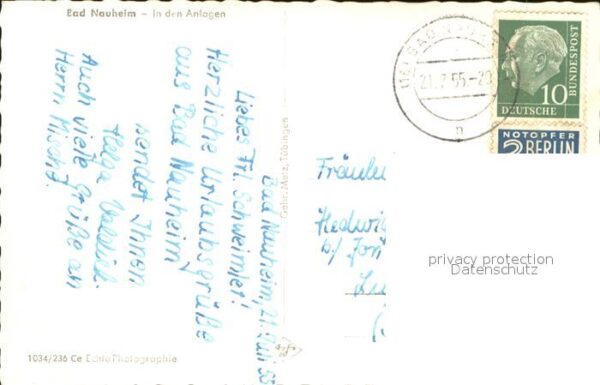 Bad Nauheim – In den Anlagen
Bad Nauheim, 21. Juli 55
Liebes Frl. Schweimlet!
Herzliche Urlaubsgrüße
aus Bad Nauheim
sendet Ihnen
Helga
Auch viele Grüße an
Herrn
Gebr. Metz, Tübingen
1034/236 Ce Echte Photographie
BAD NAUHEIM
21.7.55-20
10
DEUTSCHE
BUNDESPOST
NOTOPFER
2 BERLIN
Fräulein
Hedwig
b/
privacy protection
Datenschutz